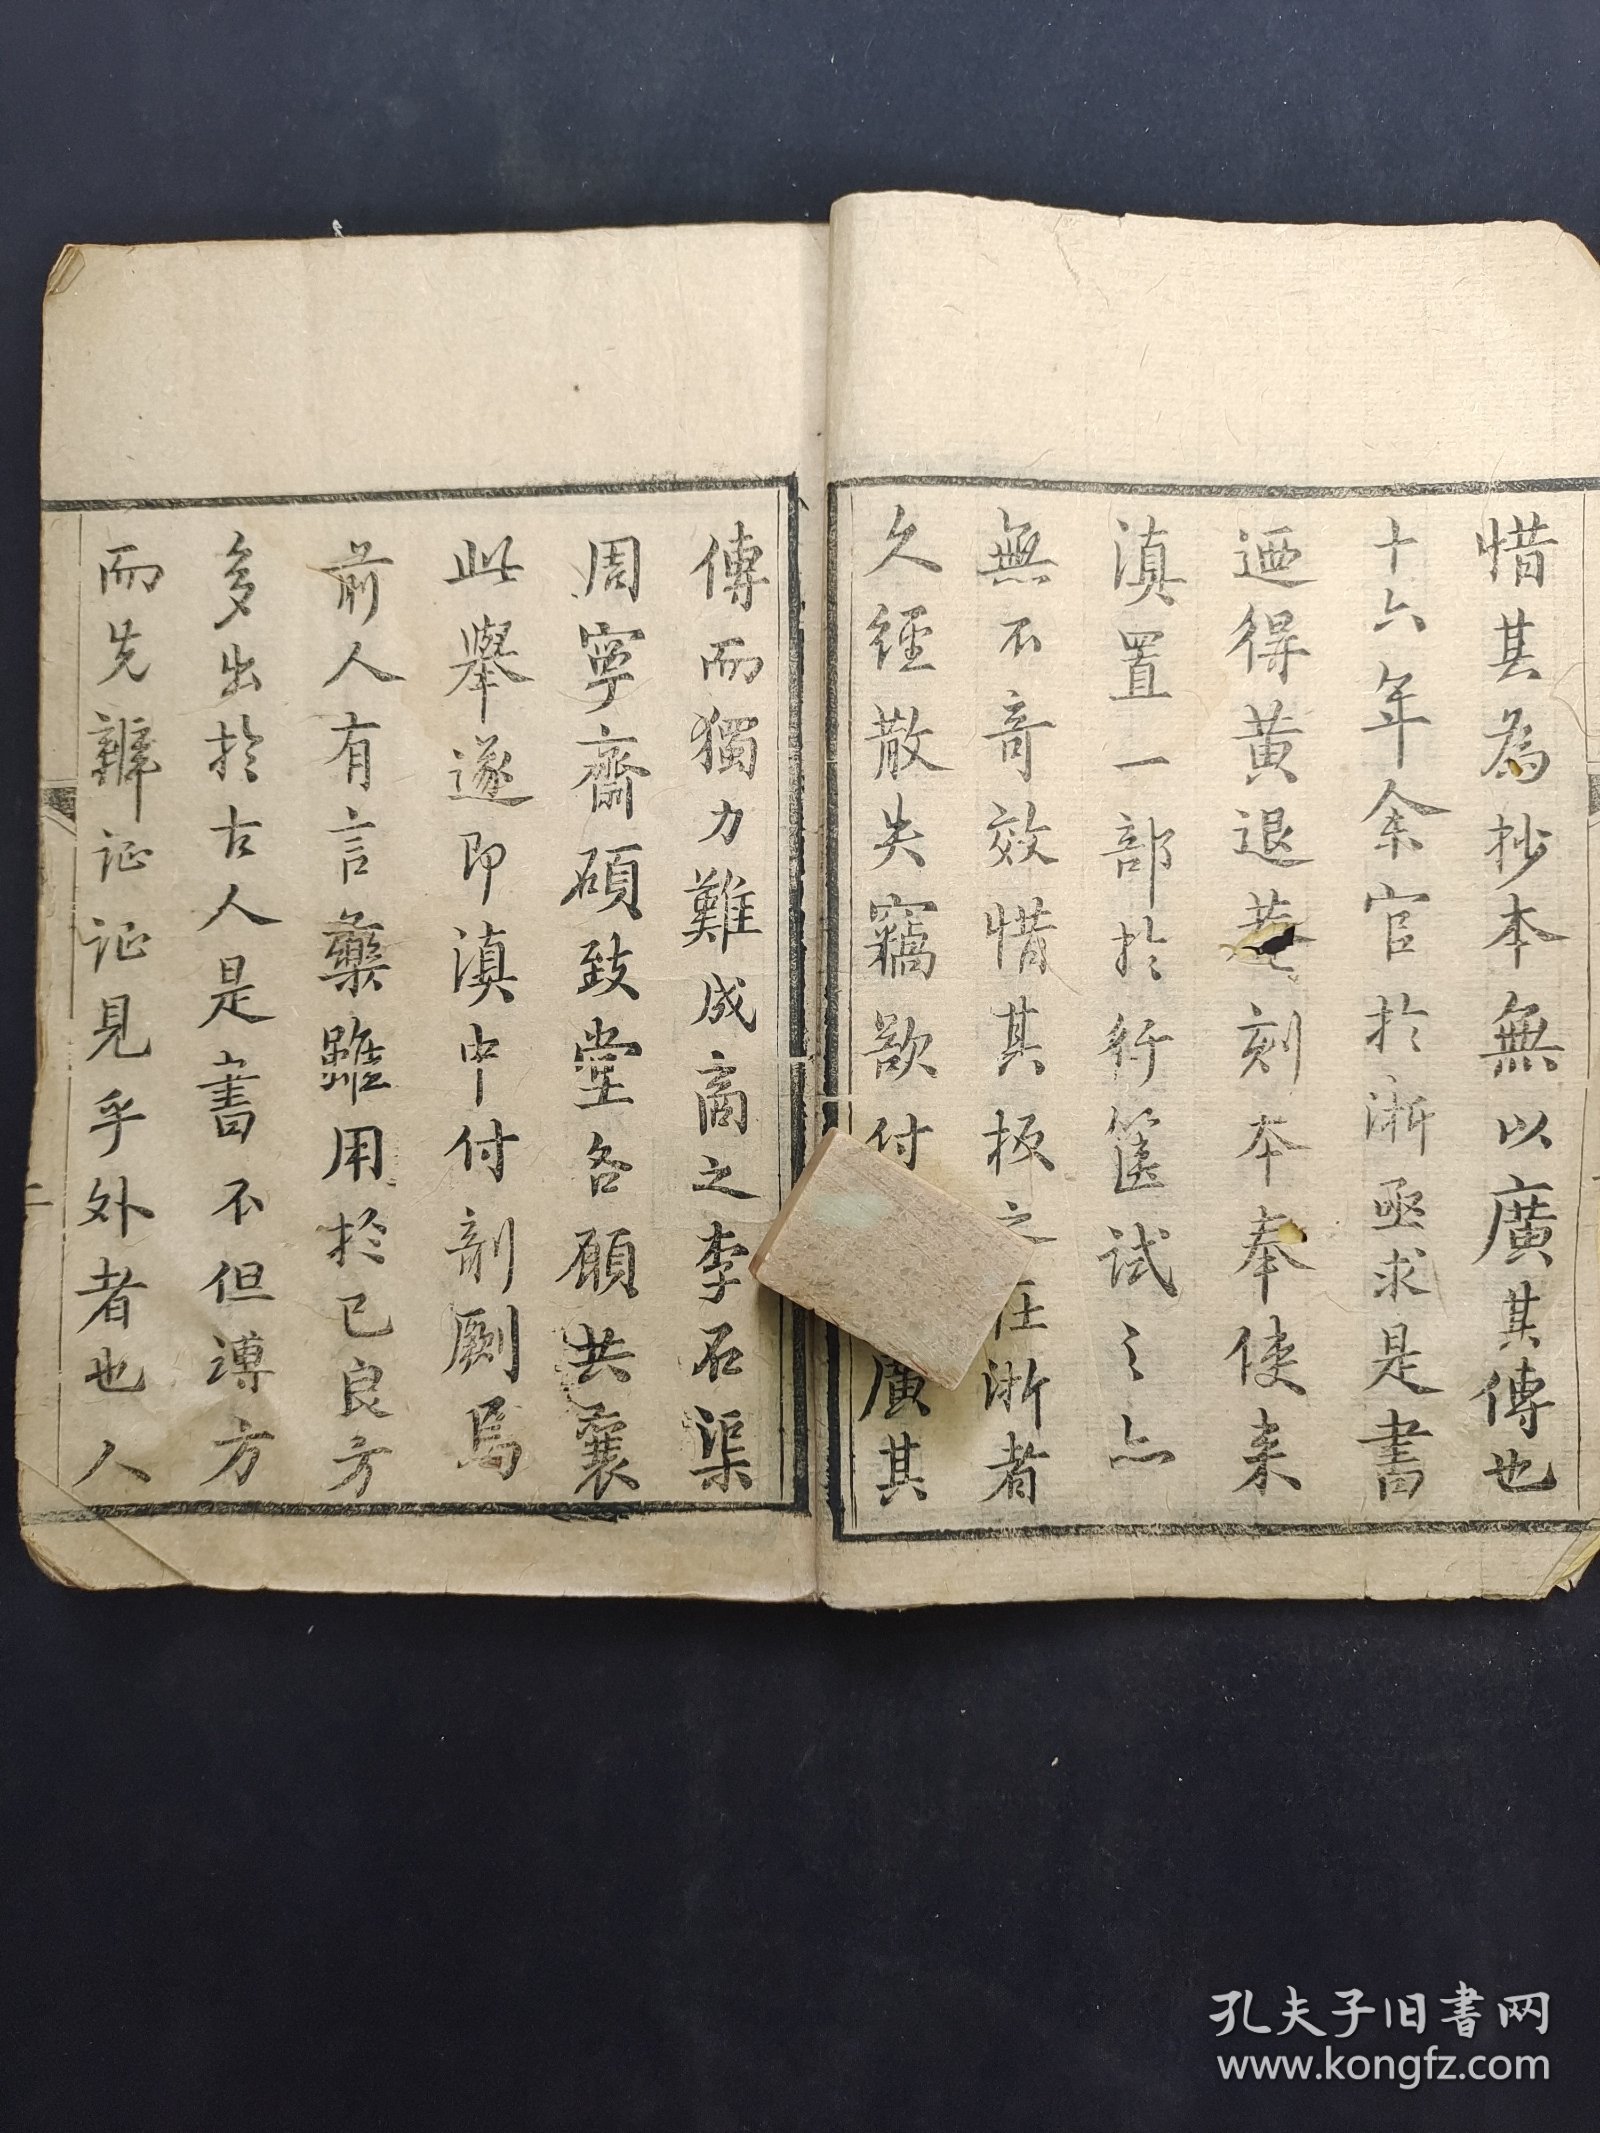 惜其為抄本無以廣其傳也
十六年余官於浙亟求是書
迺得黄退菴刻本奉使来
滇置一部於行篋試之亦
無不竒效惜其板之在浙者
久經散失竊欲付廣其
傳而獨力難成商之李石渠
周寧齋碩致堂各願共襄
此舉遂即滇中付剞劂焉
前人有言藥雖用於已良方
多出於古人是書不但溥方
而先辨证证見乎外者也人
二
孔夫子旧书网
www.kongfz.com